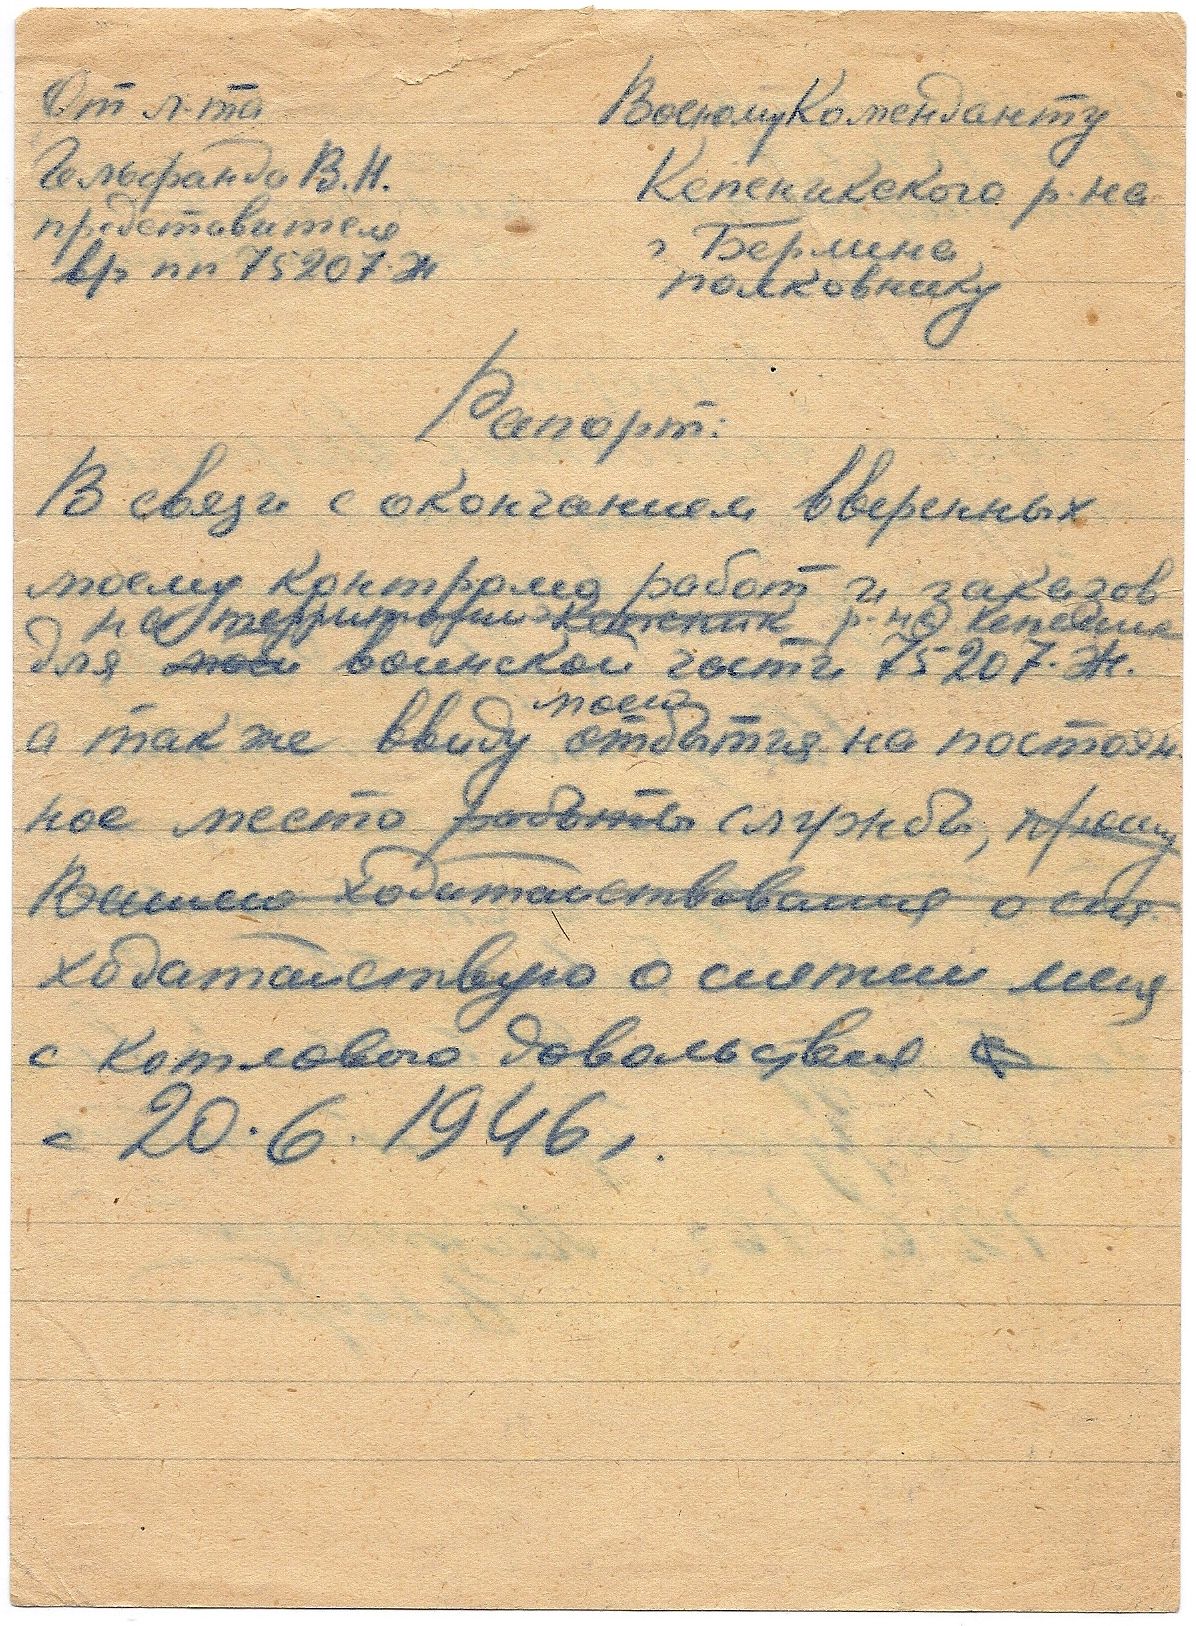 От л-та
Гельфанда В.Н.
представителя
вр пп 75207-Ж
Военому Коменданту
Кепеникского р-на
г Берлина
полковнику
Рапорт:
В связи с окончанием вверенных
моему контролю работ и заказов
на территории р-на Кепеник
для моей воинской части 75207-Ж.
моего
а так же ввиду отбытия на постоян-
ное место работы службы, прошу
Вашего ходатайствования о сня
ходатайствую о снятии меня
с котлового довольствия
с 20.6.1946 г.